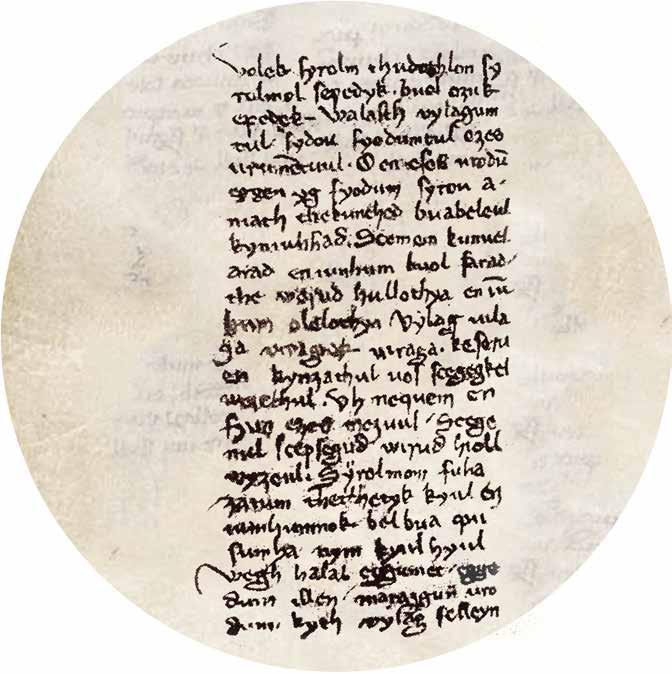 Volek syrolm thudothlon sy
rolmol sepedyk. buol ozuk
epedek – Walasth vylagum
tul. sydou fyodumtul ezes
urumētuul. O en eseſ urodū
eggen yg fyodum syrou a-
niath thekunched buabeleul
kyniuhhad. Scemem kunuel
arad en iunhum buol farad
the werud hullothya en iū
hum olelothya Vylag uila
ga viragnak uiraga. keseru
en kynzathul uos scegegkel
werethul. Uh nequem en
fyon ezes mezuul Scege
nul scepsegud wirud hioll
wyzeul. Syrolmom fuha
zatum therthetyk kyul en
iumhumnok bel bua qui
sumha nym kyul hyul
Wegh halal engumet ege
dum illen maraggū uro
dum. kyth wylag felleyn